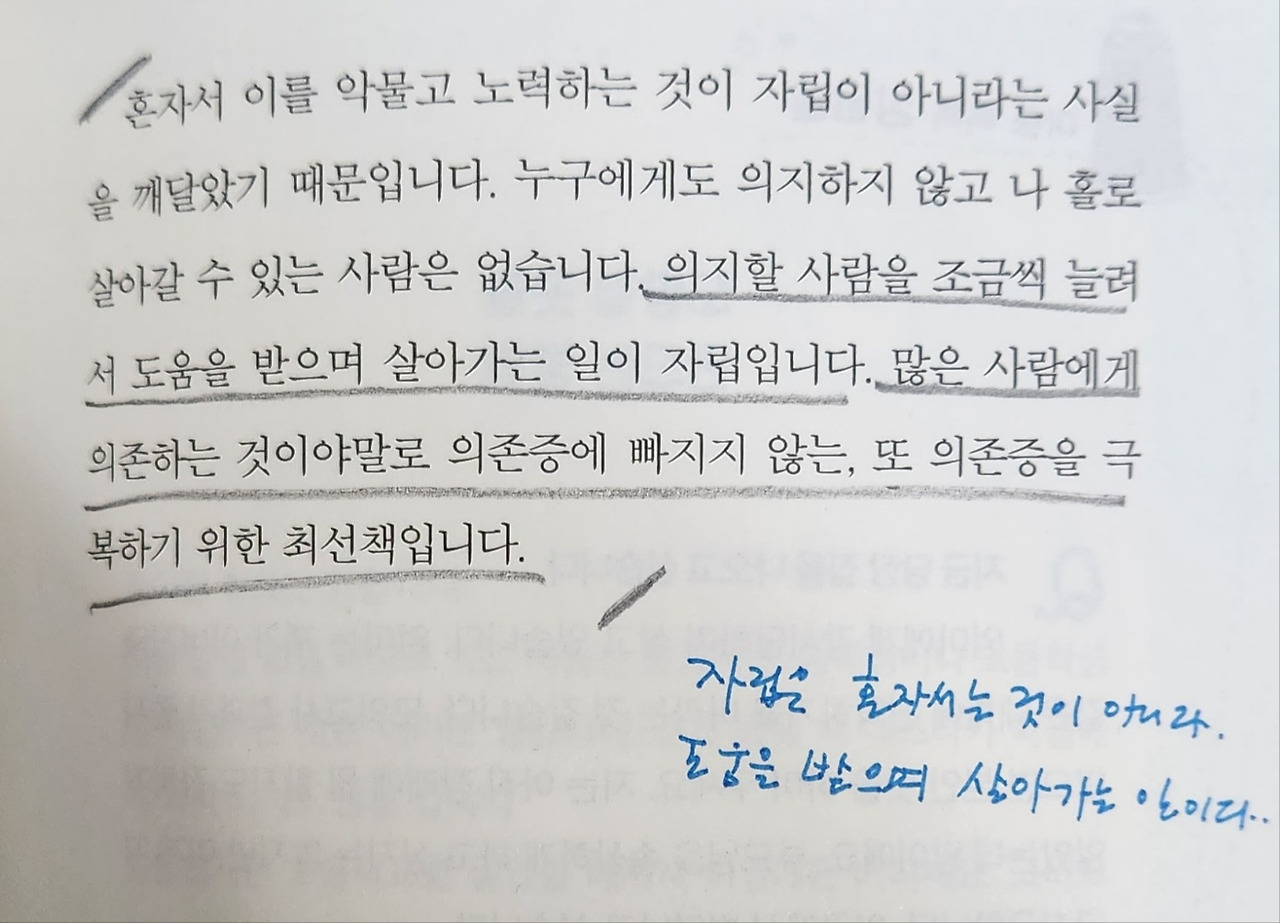 혼자서 이를 악물고 노력하는 것이 자립이 아니라는 사실
을 깨달았기 때문입니다. 누구에게도 의지하지 않고 나 홀로
살아갈 수 있는 사람은 없습니다. 의지할 사람을 조금씩 늘려
서 도움을 받으며 살아가는 일이 자립입니다. 많은 사람에게
의존하는 것이야말로 의존증에 빠지지 않는, 또 의존증을 극
복하기 위한 최선책입니다.
자립은 혼자서는 것이 아니라.
도움을 받으며 살아가는 일이다..